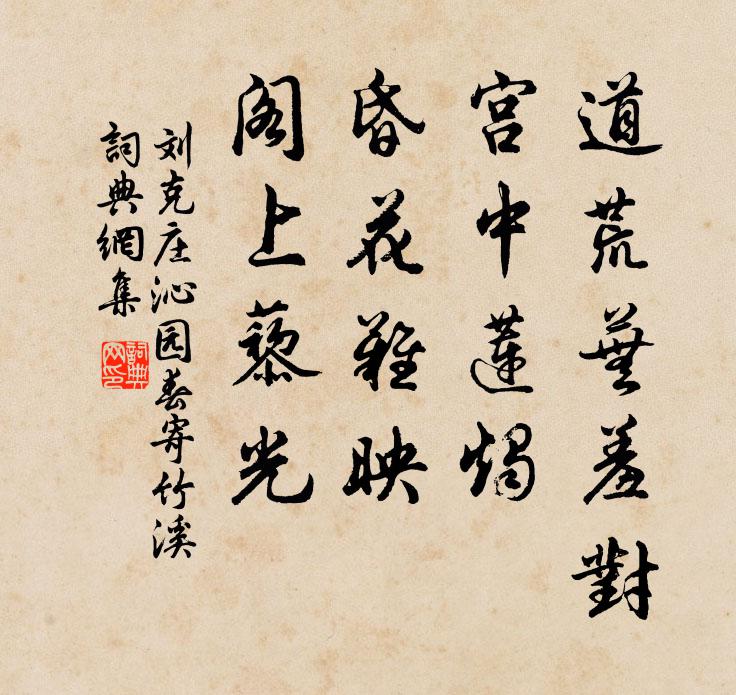 道荒芜羞對
宫中莲燭
昏花難映
阁上藜光
刘克庄沁园春寄竹溪
詞典網集
詞典網印